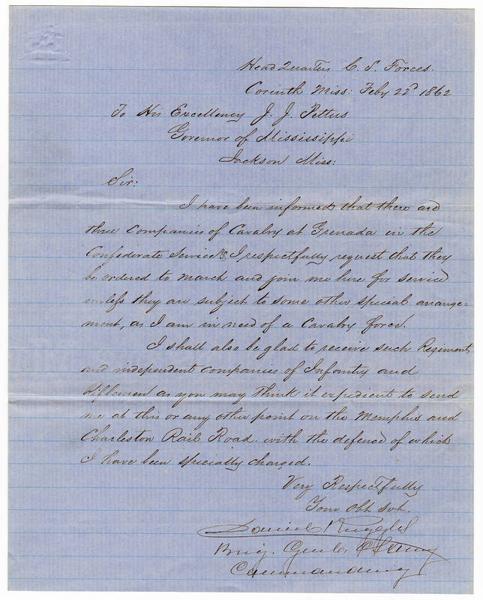 Head Quarters C. S. Forces.
Corinth Miss: Feby 22d 1862
To His Excellency J. J. Pettus
Governor of Mississippi
Jackson Miss:
Sir:
I have been informed that there are
three Companies of Cavalry at Grenada in the
Confederate Service & I respectfully request that they
be ordered to march and join me here for service
unless they are subject to some other special arrange-
ment, as I am in need of a Cavalry force.
I shall also be glad to receive such Regiments,
and independent companies of Infantry and
Riflemen as you may think it expedient to send
me at this or any other point on the Memphis and
Charleston Rail Road with the defence of which
I have been specially charged.
Very Respectfully
Your Obt Svt.
Daniel Ruggles
Brig. Genl. C S Army
Commanding